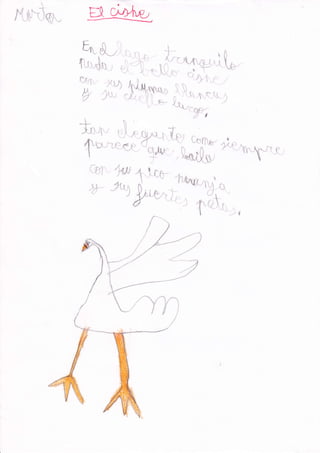 Martín El cisne
En el lago tranquilo
nada el bello cisne
con sus plumas blancas
y su cuello largo,
tan elegante como siempre
parece que baila
con su pico naranja
y sus fuertes patas.